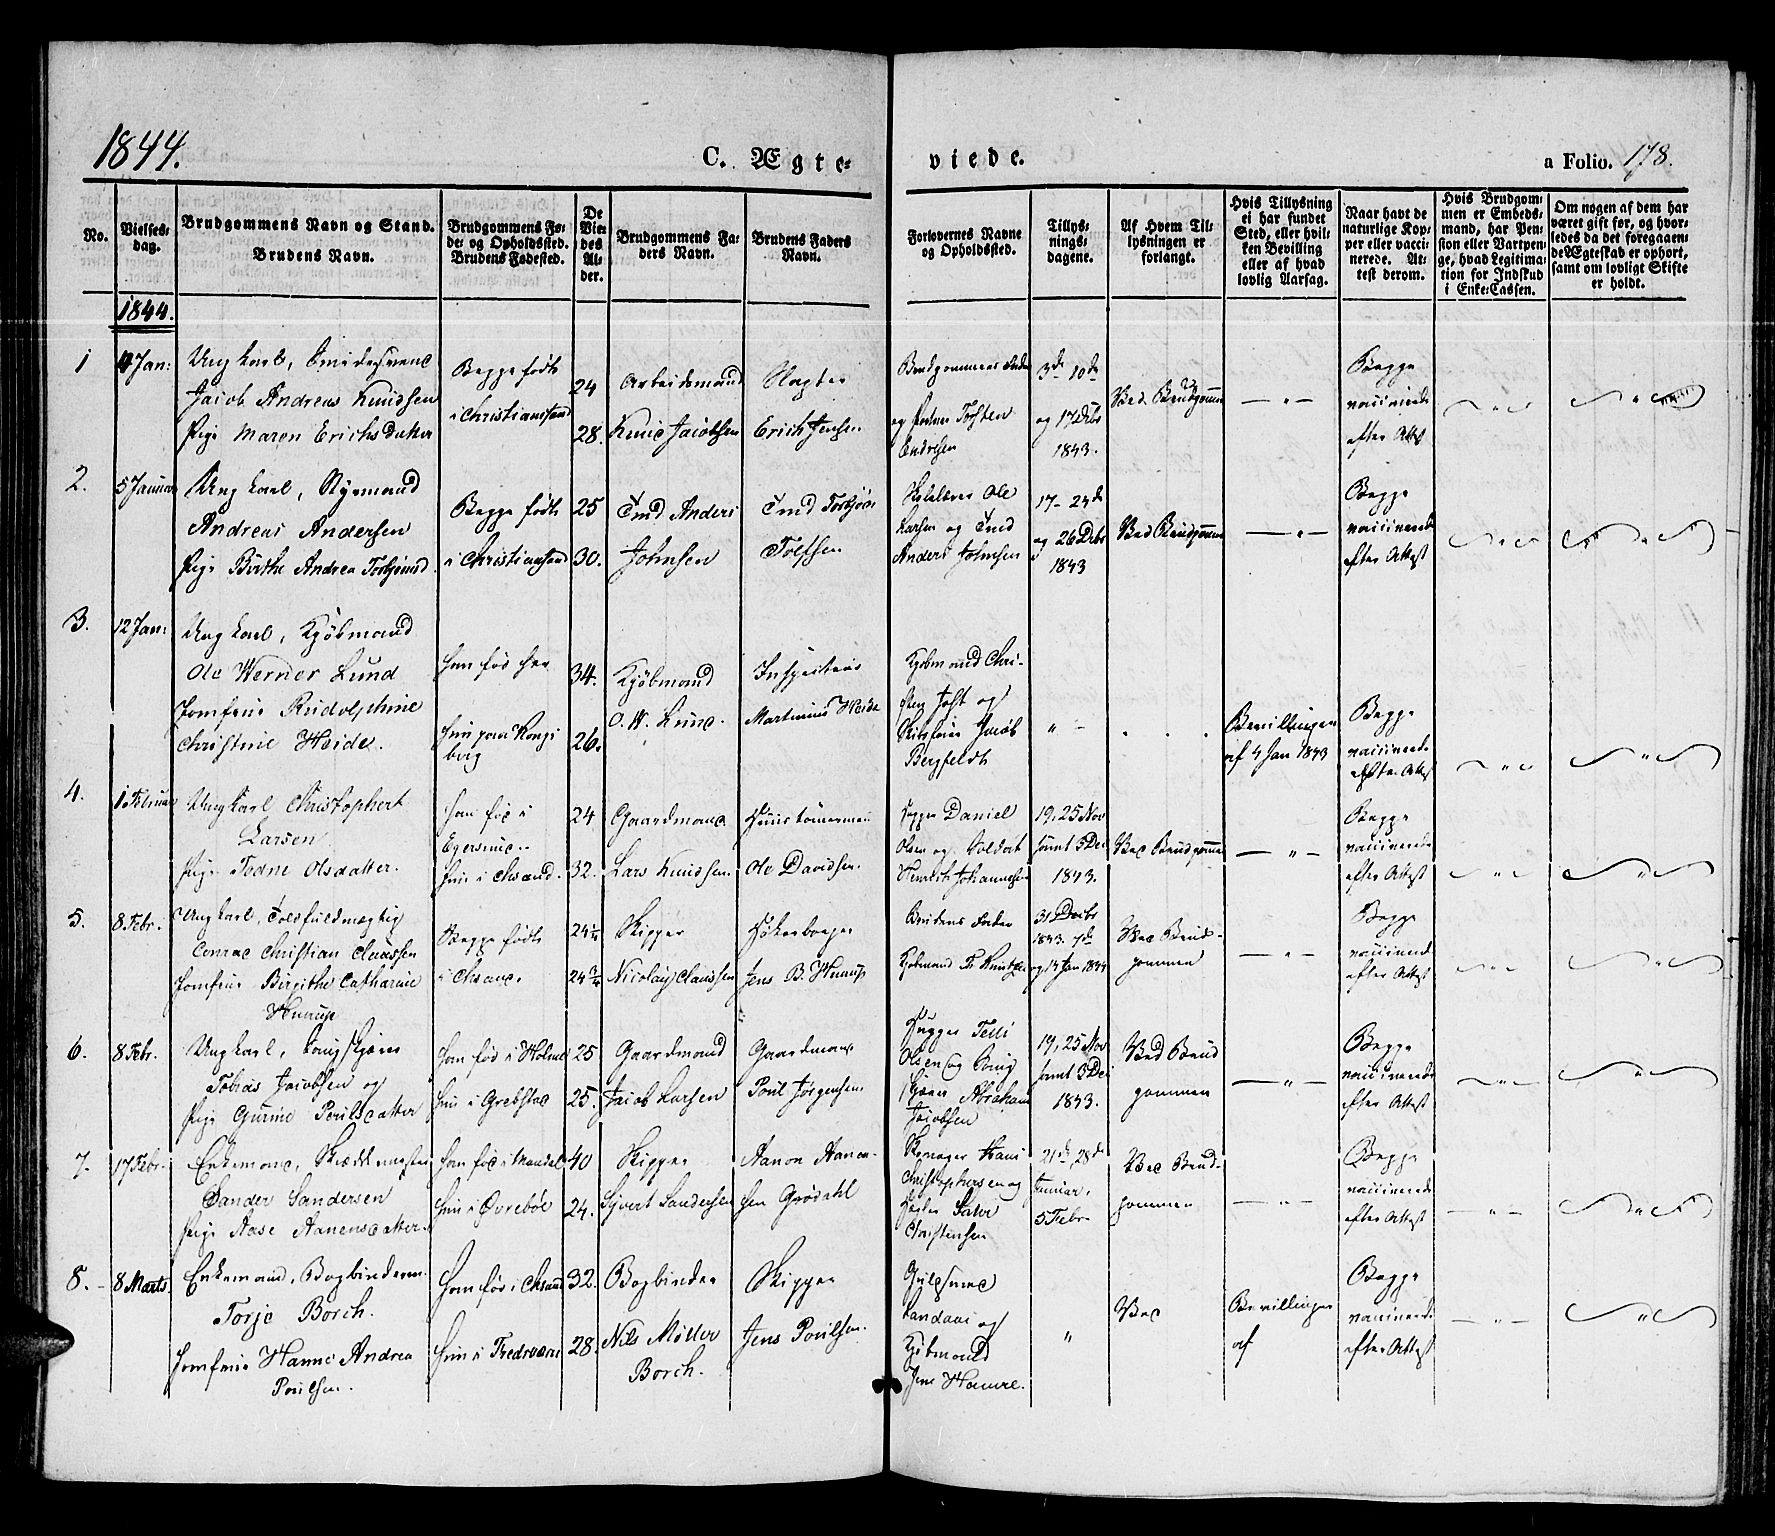 1844.
C. Ægte-
viede.
a Folio. 178.
No.
Vielses-
dag.
Brudgommens Navn og Stand.
Brudens Navn.
Brudgommens Fø-
de- og Opholdssted.
Brudens Fødested.
De
Vie-
des
Al-
der.
Brudgommens Fa-
ders Navn.
Brudens Faders
Navn.
Forlovernes Navne
og Opholdssted.
Tillys-
nings-
dagene.
Af Hvem Til-
lysningen er
forlangt.
Hvis Tillysning
ei har fundet
Sted, eller hvil-
ken Bevilling
eller af hvad
lovlig Aarsag.
Naar havt de
naturlige Kop-
per eller vacci-
nerede. At-
test derom.
Hvis Brudgom-
men er Embeds-
mand, har Pen-
sion eller Vartpen-
ge, hvad Legitima-
tion for Indskud
i Enke-Cassen.
Om nogen af dem har
været gift før, og hvor-
ledes da det foregaaen-
de Ægteskab er ophørt,
samt om lovligt Skifte
er holdt.
1844.
1
4 Jan:
Ungkarl, Smedesvend
Jacob Andreas Knudsen
Pige Maren Erichsdatter
Begge fødte
i Christianssand
24
28.
Arbeidsmand
Knud Jacobsen
Slagter
Erich Jensen
Brudgommens Fader
og Torsten
Endresen
3de 10de
og 17 Decbr
1843.
Ved Brudgommen
Begge
vaccinerede
efter Attest
2.
5 Januar
Ungkarl, Styrmand
Andreas Andersen
Pige Birthe Andrea Torkjøns
Begge fødte
i Christianssand
25
30.
Tmd Anders
Johnsen
Tmd Torkjøn
Toefsen
Ole
Larsen og Tmd
Anders Johnsen
17- 24de
og 26 Decbr
1843
Ved Brudgommen
Begge
vaccinerede
efter Attest
3.
12 Jan:
Ungkarl, Kjøbmand
Ole Werner Lund
Jomfrue Rudolphine
Christine Heide.
Han fød her
Hun paa Kongs
berg
34.
26.
Kjøbmand
O. W. Lund.
Inspecteur
Martinius Heide
Kjøbmand Chri-
sten Jost og
Jacob
Bergfeldt
Bevillingen
af 4 Jan 1843
Begge
vaccinerede
efter Attest
4.
1 Februar
Ungkarl Christophert
Larsen
Pige Todne Olsdatter.
Han fød i
Egersund.
Hun i Chsand.
24
32.
Gaardmand
Lars Knudsen.
Huustømermand
Ole Davidsen.
Daniel
Olsen og Soldat
Henrik Johannesen
19, 25 Nov
samt 3 Dec
1843.
Ved Brudgommen
Begge
vaccinerede
efter Attest
5.
8 Febr.
Ungkarl, Toldfuldmægtig
Conrad Christian Claussen
Jomfrue Birgithe Catharine
Hurup
Begge fødte
i Chsand.
24 1/4
24 3/4
Skipper
Nicolay Claussen
Høkerborger
Jens B. Hurup
Brudens Fader
Kjøbmand
31 Decbr
1843. 7de
og 14 Jan 1844
Ved Brud-
gommen
Begge
vaccinerede
efter Attest
6.
8 Febr.
Ungkarl,
Tobias Jacobsen og
Pige Gurine Poulsdatter
Han fød i Holme
Hun i Grebstad
25
25.
Gaardmand
Jacob Larsen
Gaardmand
Poul Jørgensen
Telli
Olsen og
Abraham
Jacobsen
19, 25 Nov
samt 3 Dec
1843.
Ved Brud
gommen
Begge
vaccinerede
efter Attest
7.
17 Febr.
Enkemand, Skræddermester
Sander Sandersen
Pige Aase Aanensdatter
Han fød i Mandal
Hun i Øvrebøe
40
24.
Skipper
Syvert Sandersen
Aanon Aanen-
sen Grødahl
Hans
Christophersen og
Christensen
21de, 28de
Januar,
5 Febr
Ved Brud-
gommen
Begge
vaccinerede
efter Attest
8.
8 Marts
Enkemand, Bogbinderm.
Torje Borch.
Jomfrue Hanne Andrea
Poulsen.
Han fød i Chsand
Hun i Fredrsværn
32.
28.
Bogbinder
Nils Møller
Borch.
Skipper
Jens Poulsen.
Landaas og
Kjøbmand
Ved
Bevillingen
af
Begge
vaccinerede
efter Attest